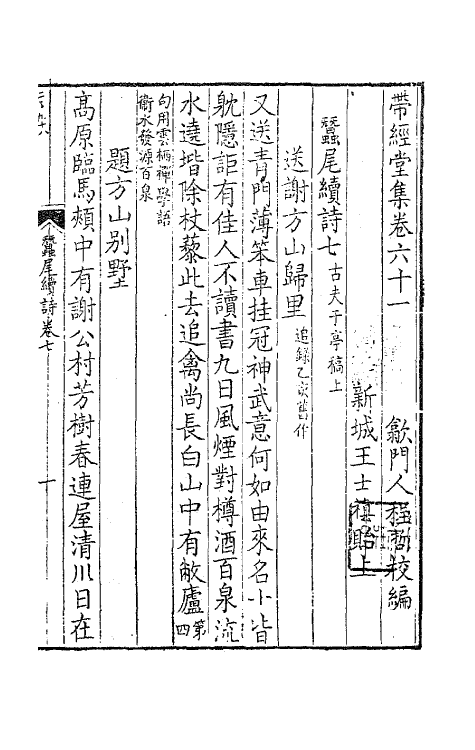 帶經堂集卷六十一
歙門人程哲校編
新城王士禛貽上
蠶尾續詩七 古夫于亭稿上
送謝方山歸里 追錄乙亥舊作
又送青門薄笨車挂冠神武意何如由來名士皆
躭隱詎有佳人不讀書九日風煙對樽酒百泉流
水遶堦除杖藜此去追禽尚長白山中有敝廬第四
句用雲棲禪學語
衞水發源百泉
題方山别墅
高原臨馬頰中有謝公村芳樹春連屋清川日在
蠶尾續詩卷七
一